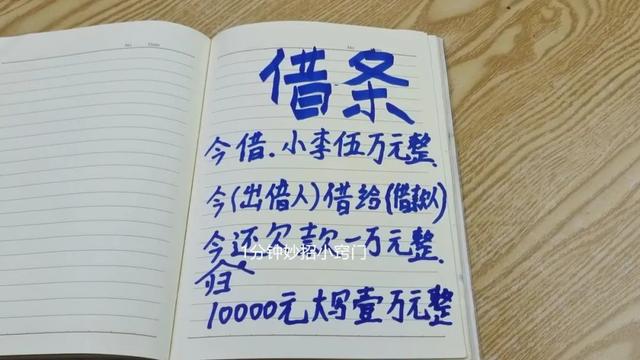 借条
今借.小李伍万元整.
今(出借人)借给(借款人)
今还欠款一万元整.
归
1分钟妙招小窍门
10000元大写壹万元整